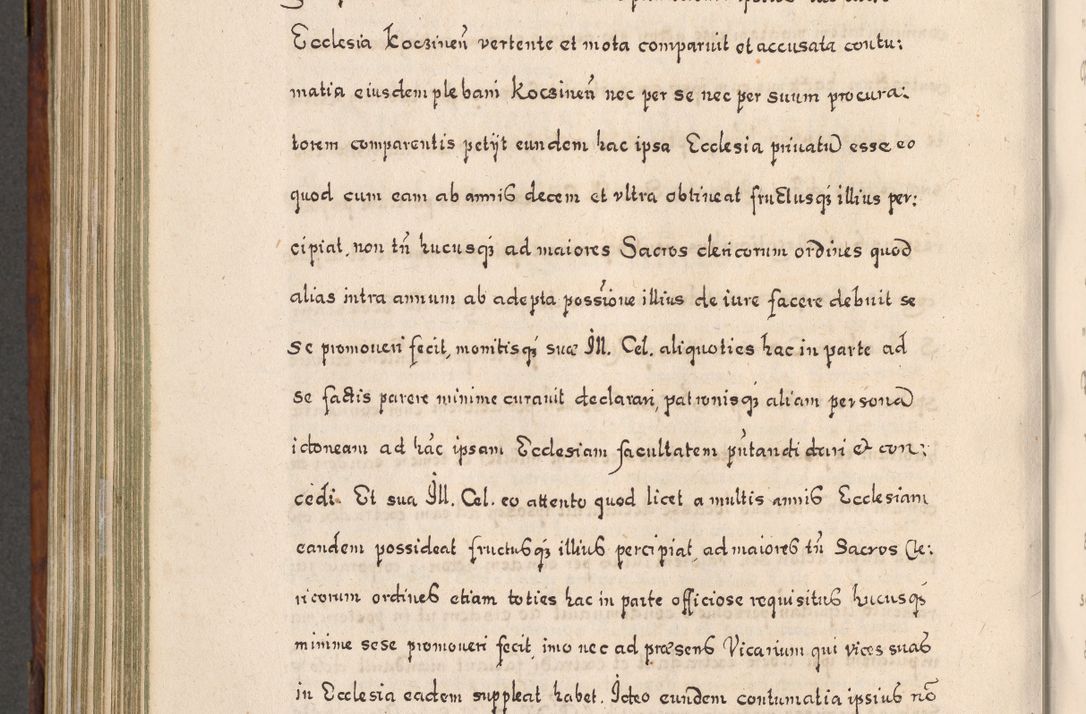 Ecclesia Koczineñ vertente et mota comparuit et accusata contu:
matia eiusdem plebani Koczineñ nec per se nec per suum procura:
torem comparentis petijt eundem hac ipsa Ecclesia priuatũ esse eo
quod cum eam ab annis decem et vltra obtineat fructusqʒ illius per:
cipiat, non tñ hucusqʒ ad maiores Sacros clericorum ordines quod
alias intra annum ab adepta possióne illius de iure facere debuit se
se promoueri fecit, monitisqʒ suæ Ill. Cel. aliquoties hac in parte ad
se factis parere minime curauit declarari, patronisqʒ aliam personã
idoneam ad hác ipsam Ecclesiam facultatem pñtandi dari et con:
cedi. Et sua Ill. Cel. eo attento quod licet a multis annis Ecclesiam
eandem possideat fructusqʒ illius percipiat, ad maiores tñ Sacros Cle:
ricorum ordines etiam toties hac in parte officiose requisitus hucusqʒ
minime sese promoueri fecit, imo nec ad præsens Vicarium qui vices suas
in Ecclesia eadem suppleat habet. Ideo eundem contumatia ipsius nõ